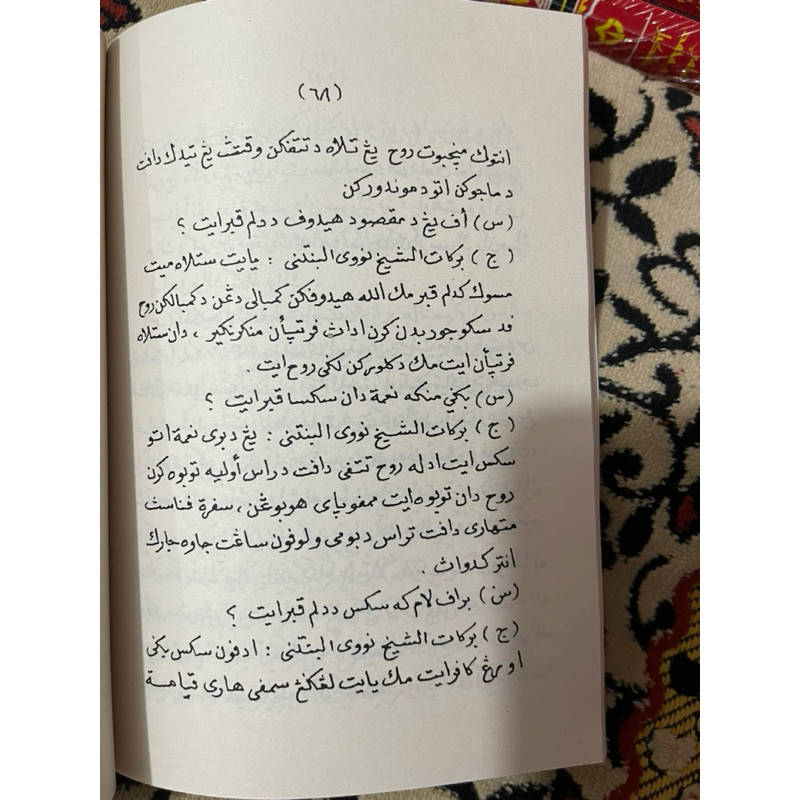 (٦٨)
انتوك منچبوت روح يڠ تله دتتفكن وقتث يڠ تيدك دافت
دماجوكن اتو دموندوركن
(س) أف يڠ دمقصود هيدوف ددلم قبرايت ؟
(ج) بركات الشيخ نووي البنتني : يايت ستلاه ميت
مسوك كدلم قبر مك الله هيدوفكن كمبالي دڠن دكمبالكن روح
فد سكوجور بدن كرن اداث فرتپأن منكرنكير ، دان ستلاه
فرتپأن ايت مك دكلوركن لكي روح ايت .
(س) بكي منكه نعمة دان سكسا قبرايت ؟
(ج) بركات الشيخ نووي البنتني : يڠ دبري نعمة اتو
سكس ايت اداله روح تتفي دافت دراس أوليه توبوه كرن
روح دان توبوه ايت ممفوپاي هوبوڠن ، سفرة فناسث
متهاري دافت تراس دبومي ولوفون ساڠت جاوه جارك
انتر كدواث .
(س) براف لام كه سكس ددلم قبرايت ؟
(ج) بركات الشيخ نووي البنتني : ادفون سكس بكي
اورڠ كافرايت مك يايت لڠكڠ سمفي هاري قيامة